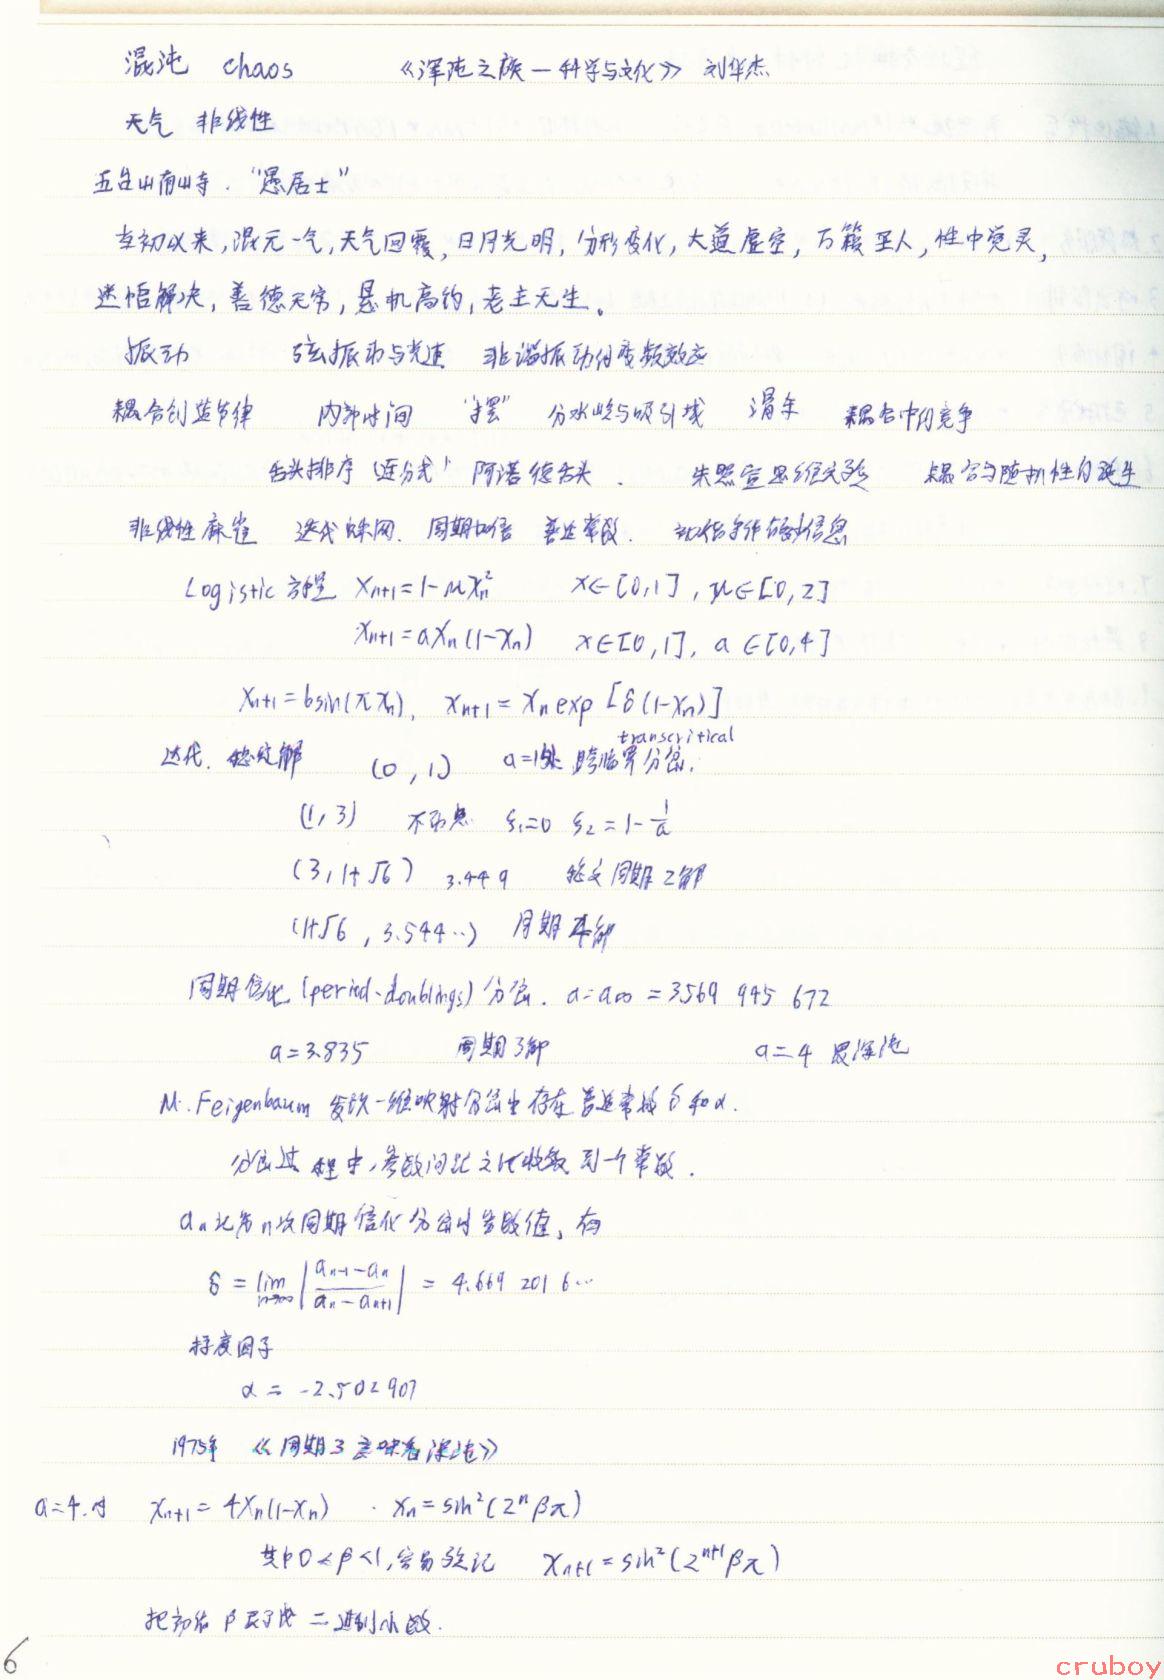 混沌 chaos 《浑沌之旅—科学与文化》 刘华杰
天气 非线性
五台山南山寺. "愚居士"
当初以来,混元一气,天气回覆,日月光明,分形变化,大道虚空,万籁至人,性中觉灵,
迷悟解决,善德无常,悬机高钓,老主无生。
振动 弦振动与光速 非谐振动的变频效应
耦合创造节律 内部时间 "摆" 分水岭与吸引域 滑车 耦合中的竞争
舌头排序 (连分式) 阿诺德舌头. 朱照宣思维文段 耦合与随机性的诞生
非线性麻雀 迭代蛛网. 周期加倍 普适常数. 初始条件 信息
Logistic 方程 Xn+1=1-μXn² X∈[0,1], μ∈[0,2]
Xn+1=aXn(1-Xn) X∈[0,1], a∈[0,4]
Xn+1=bsin(πXn), Xn+1=Xn exp[δ(1-Xn)]
transcritical
迭代. 稳定解 (0,1) a=1处 跨临界分岔.
(1,3) 不动点 ξ1=0 ξ2=1-1/a
(3,1+√6) 3.449 稳定周期2解
(1+√6, 3.544··) 周期4解
周期倍化(period-doublings)分岔. a=a∞=3.569 945 672
a=3.835 周期3解 a=4 更浑沌
M.Feigenbaum 发现一维映射分岔中存在普适常数δ和α.
分岔过程中,参数间距之比收敛到一个常数.
an记为n次周期倍化分岔时参数值,有
δ=lim n→∞ |(an-1-an)/(an-an+1)| = 4.669 201 6···
标度因子
α=-2.502907
1975年 《周期3意味着浑沌》
a=4.时 Xn+1=4Xn(1-Xn) . Xn=sin²(2ⁿβπ)
其中0<β<1,容易验证 Xn+1=sin²(2ⁿ⁺¹βπ)
把初始β展成二进制小数.
6
cruboy